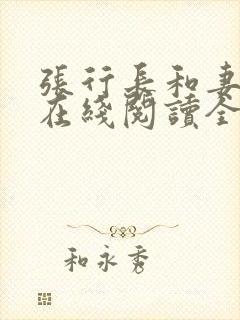 張行長和妻
在綫閱讀全
和永秀